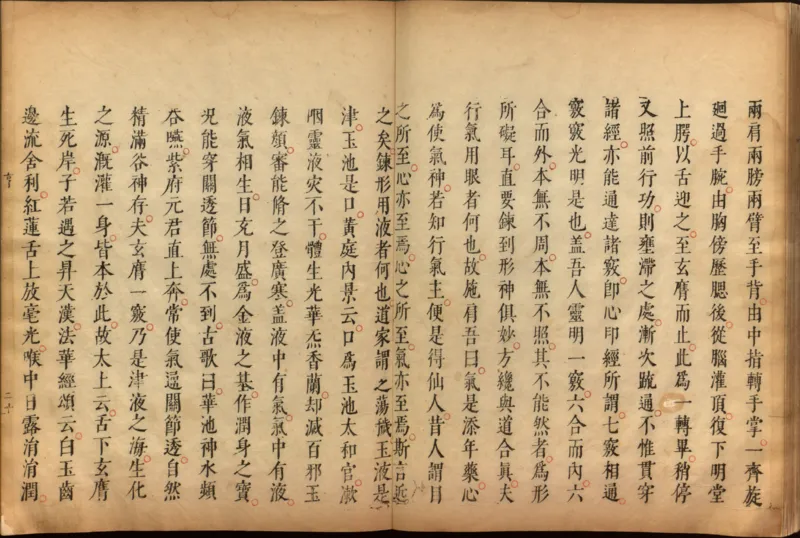 兩肩兩膀兩臂至手背由中指轉手掌一齊旋
廻過手腕由胸傍歷腮後從腦灌頂復下明堂
上腭以舌迎之至玄膺而止此為一轉畢稍停
又照前行功則壅滯之處漸次疏通不惟貫穿
諸經亦能通達諸竅卽心印經所謂七竅相通
竅竅光明是也蓋吾人靈明一竅六合而內六
合而外本無不周本無不照其不能然者為形
所礙耳直要鍊到形神俱妙方纔與道合眞夫
行氣用眼者何也故施肩吾曰氣是添年藥心
為使氣神若知行氣主便是得仙人昔人謂目
之所至心亦至焉心之所至氣亦至焉斯言近
之矣鍊形用液者何也道家謂之蕩穢玉液是
津玉池是口黃庭內景云口為玉池太和官漱
咽靈液灾不干體生光華炁香蘭却滅百邪玉
鍊顏審能脩之登廣寒蓋液中有氣氣中有液
液氣相生日充月盛為金液之基作潤身之寶
況能穿關透節無處不到古歌曰華池神水頻
吞嚥紫府元君直上奔常使氣通關節透自然
精滿谷神存夫玄膺一竅乃是津液之海生化
之源溉灌一身皆本於此故太上云舌下玄膺
生死岸子若遇之昇天漢法華經頌云白玉齒
邊流舍利紅蓮舌上放毫光喉中日露涓涓潤